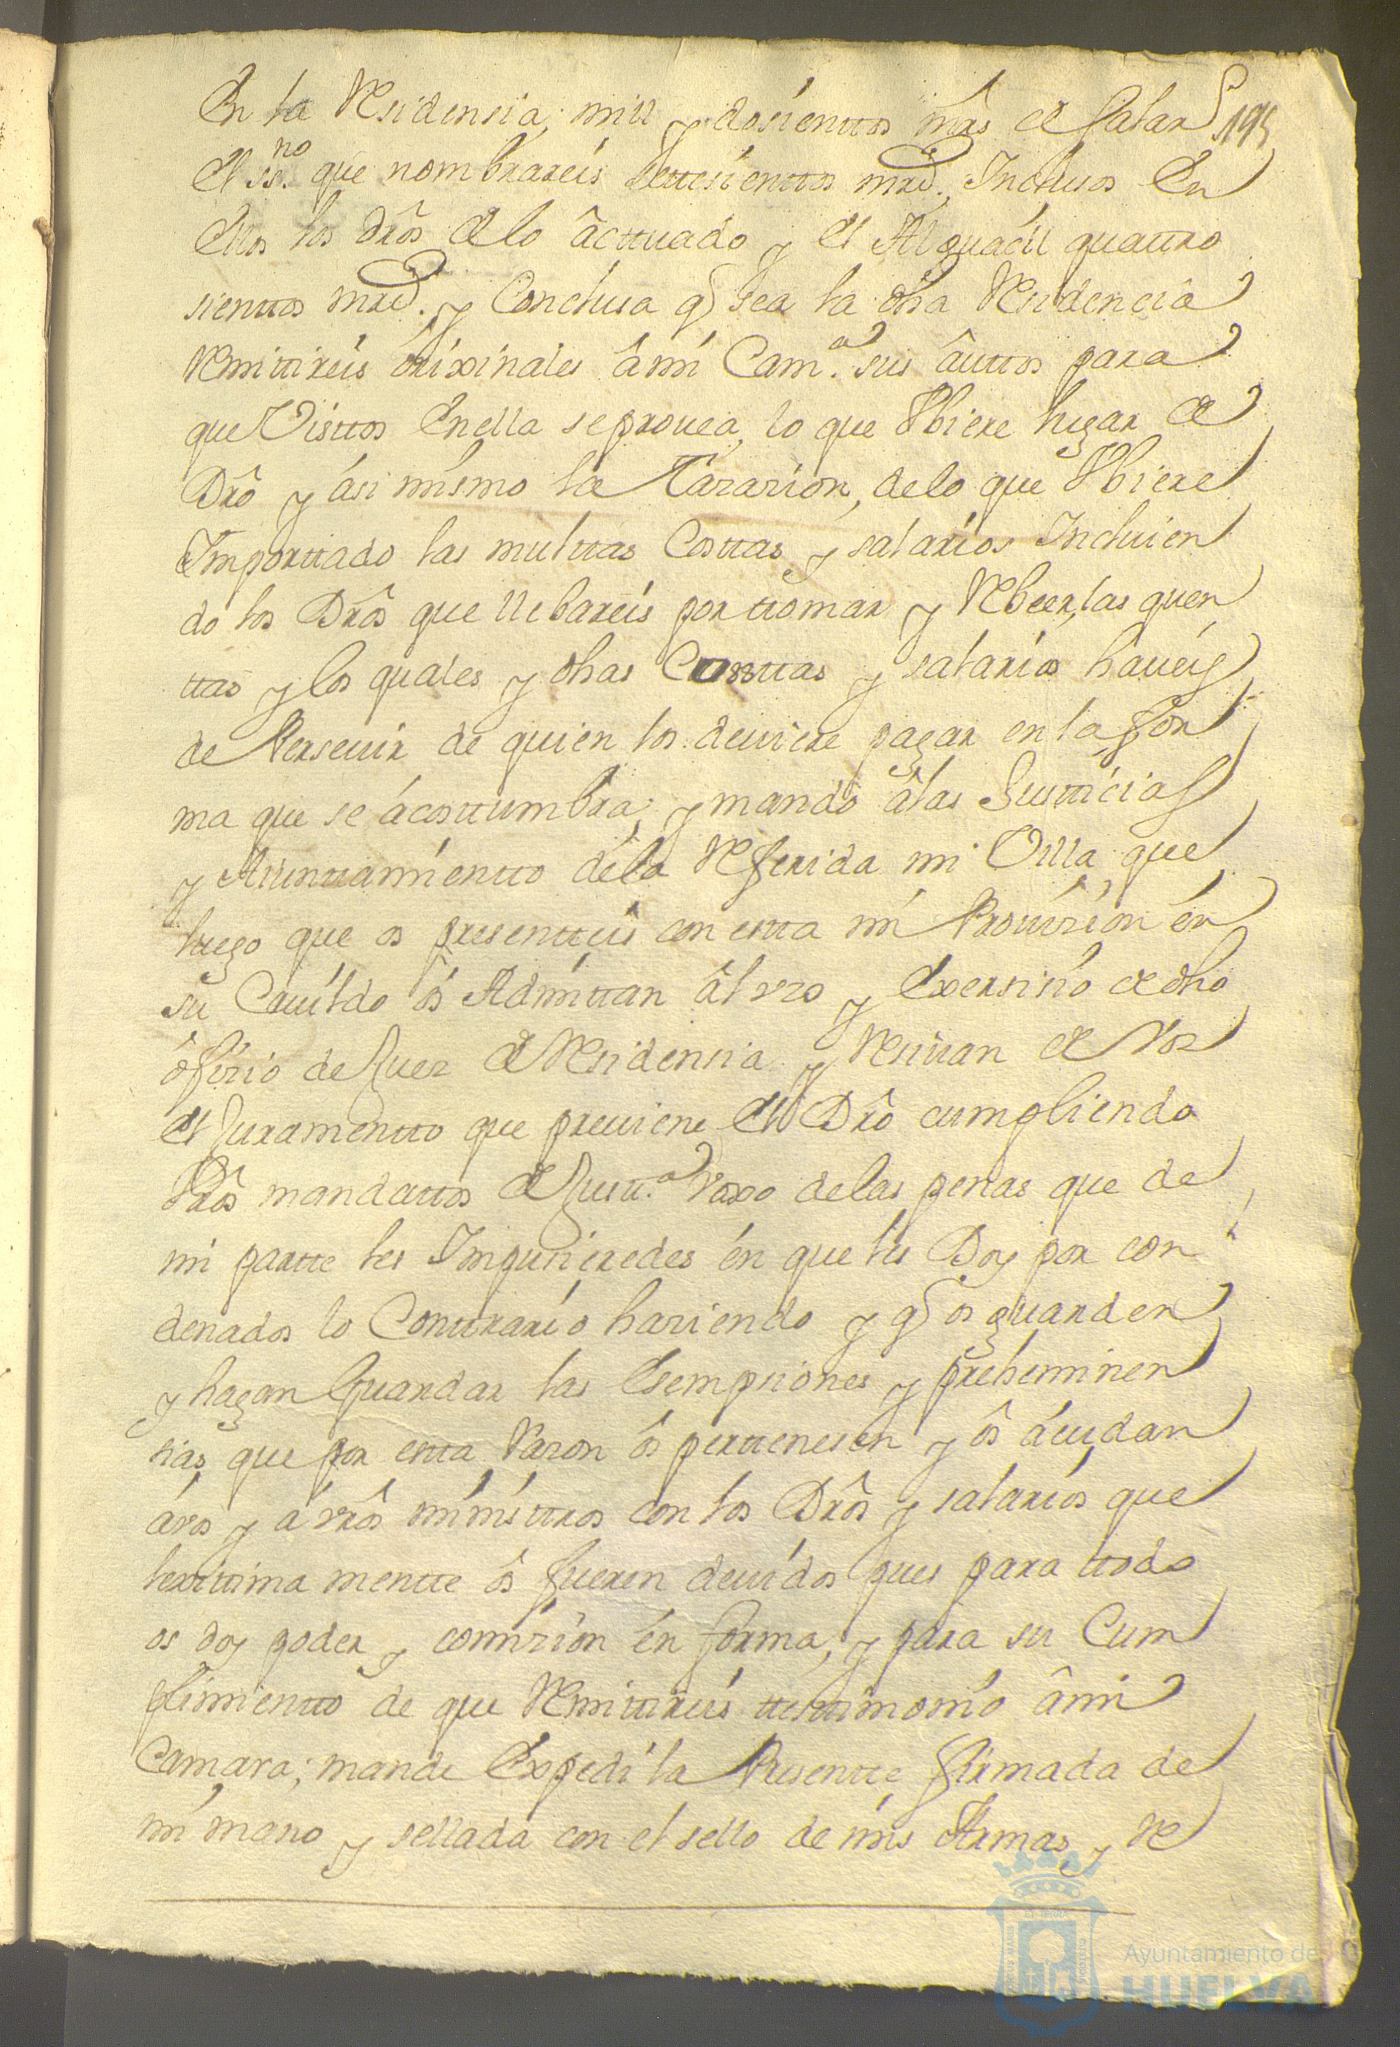 En la Residensia, mill y dosienttos mrs de salar
195
El ss.no que nombrareis settesienttos mrd. Inclusos En
Ellos los Drôs de lo âcttuado y el Alguacil quattro
sienttos mrd. y Conclusa q sea la dha Residencia
Remittireis orixinales â mi Cam.a sus âuttos para
que Visttos En ella se prouea, lo que Vbiere lugar de
Drô y ási mismo la Tazazion, de lo que Vbiere
Importtado las multtas Costtas y salarios Incluien
do los Drôs que llebareis por ttomar y Rbeer, las quen
ttas y los quales y dhas Costtas y salarios haueis
de Perseuir de quien los deuiere pagar en la for
ma que se ácosttumbra; y mando âlas Justticias
y Aiunttamientto dela Referida mi Villa que
luego que os presentteis con estta mi Prouizion én
su Cauildo ôs Admittan âl vzo y Exersisio de dho
ôfizio de Juez de Residensia y Resiuan de Vos
el Juramentto que preuiene el Drô cumpliendo
Vrôs mandattos de Justt.a vaxo delas penas que de
mi partte les Impusieredes én que les Doy por con
denados lo Conttrario haziendo y q os guarden
y hagan Guardar las Esempsiones y preheminen
sias que por estta Razon ôs perttenesen y ôs ácudan
á vos y á vrôs ministtros con los Drôs y salarios que
lexittima mentte ôs fueren deuidos pues para ttodo
os doy poder y comizion én forma, y para su Cum
plimientto de que Remittireis ttesttimonio â mi
Camara; mande Expedi la Presentte firmada de
mi mano y sellada con el sello de mis Armas y Re
Ayuntamiento de
HUELVA